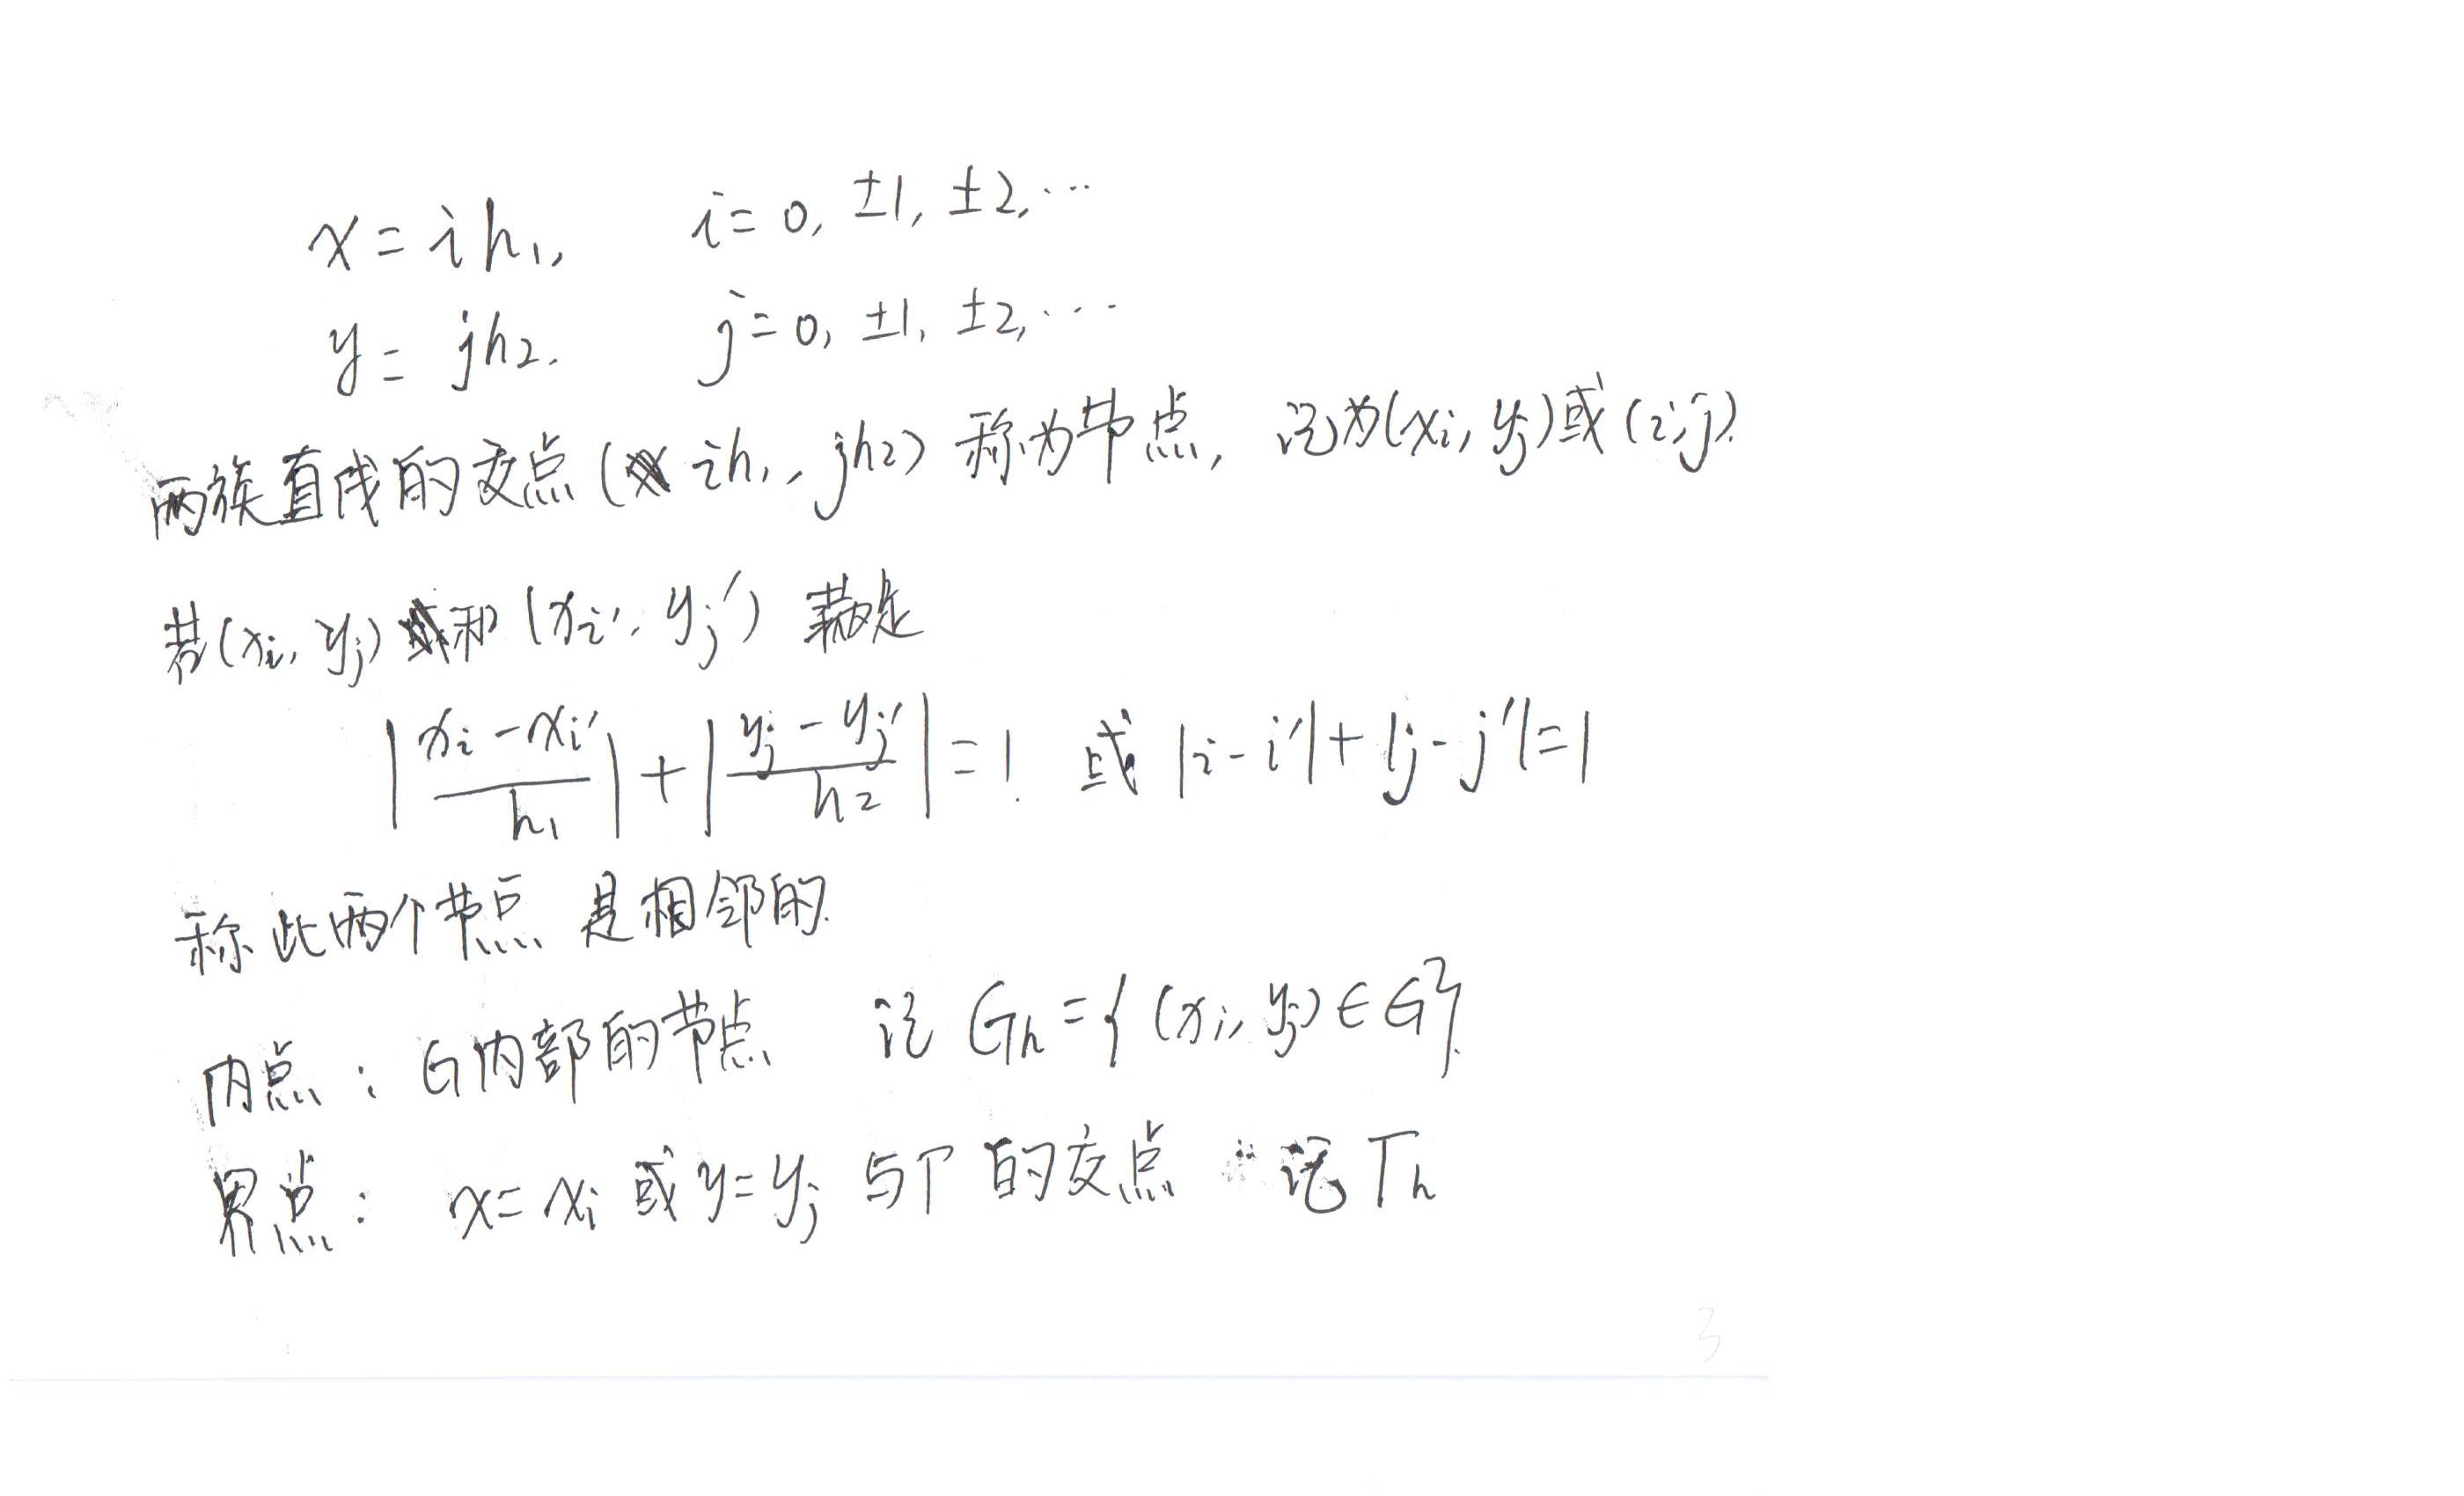 x = ih₁,   i = 0, ±1, ±2, ⋯
y = jh₂.   j = 0, ±1, ±2, ⋯
两族直线的交点 (ih₁, jh₂) 称为节点, 记为(xᵢ, yⱼ)或(i,j).
若(xᵢ, yⱼ) 和 (xᵢ′, yⱼ′) 满足
|(xᵢ - xᵢ′)/h₁| + |(yⱼ - yⱼ′)/h₂| = 1. 或 |i - i′| + |j - j′| = 1
称此两个节点是相邻的.
内点: G内部的节点 记 Gₕ = {(xᵢ, yⱼ) ∈ G}.
界点: x = xᵢ 或 y = yⱼ 与Γ的交点 记 Γₕ
3